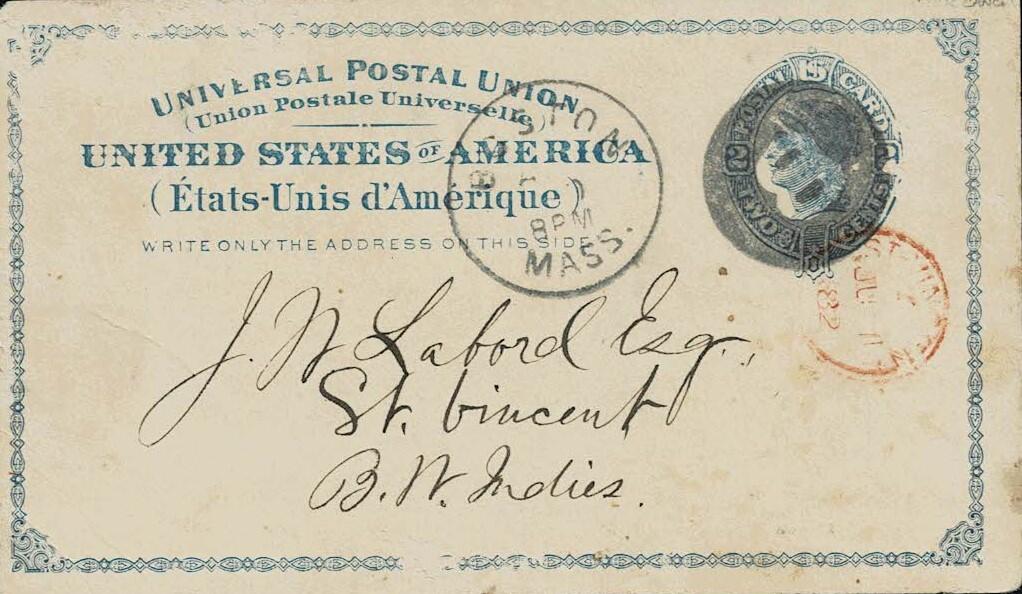 UNIVERSAL POSTAL UNION
(Union Postale Universelle)
UNITED STATES OF AMERICA
(États-Unis d'Amérique)
WRITE ONLY THE ADDRESS ON THIS SIDE
BOSTON
8PM
MASS.
POSTAL CARD
U S
2 TWO CENTS 2
82
J. W. Labord Esq.,
St. Vincent
B. W. Indies.